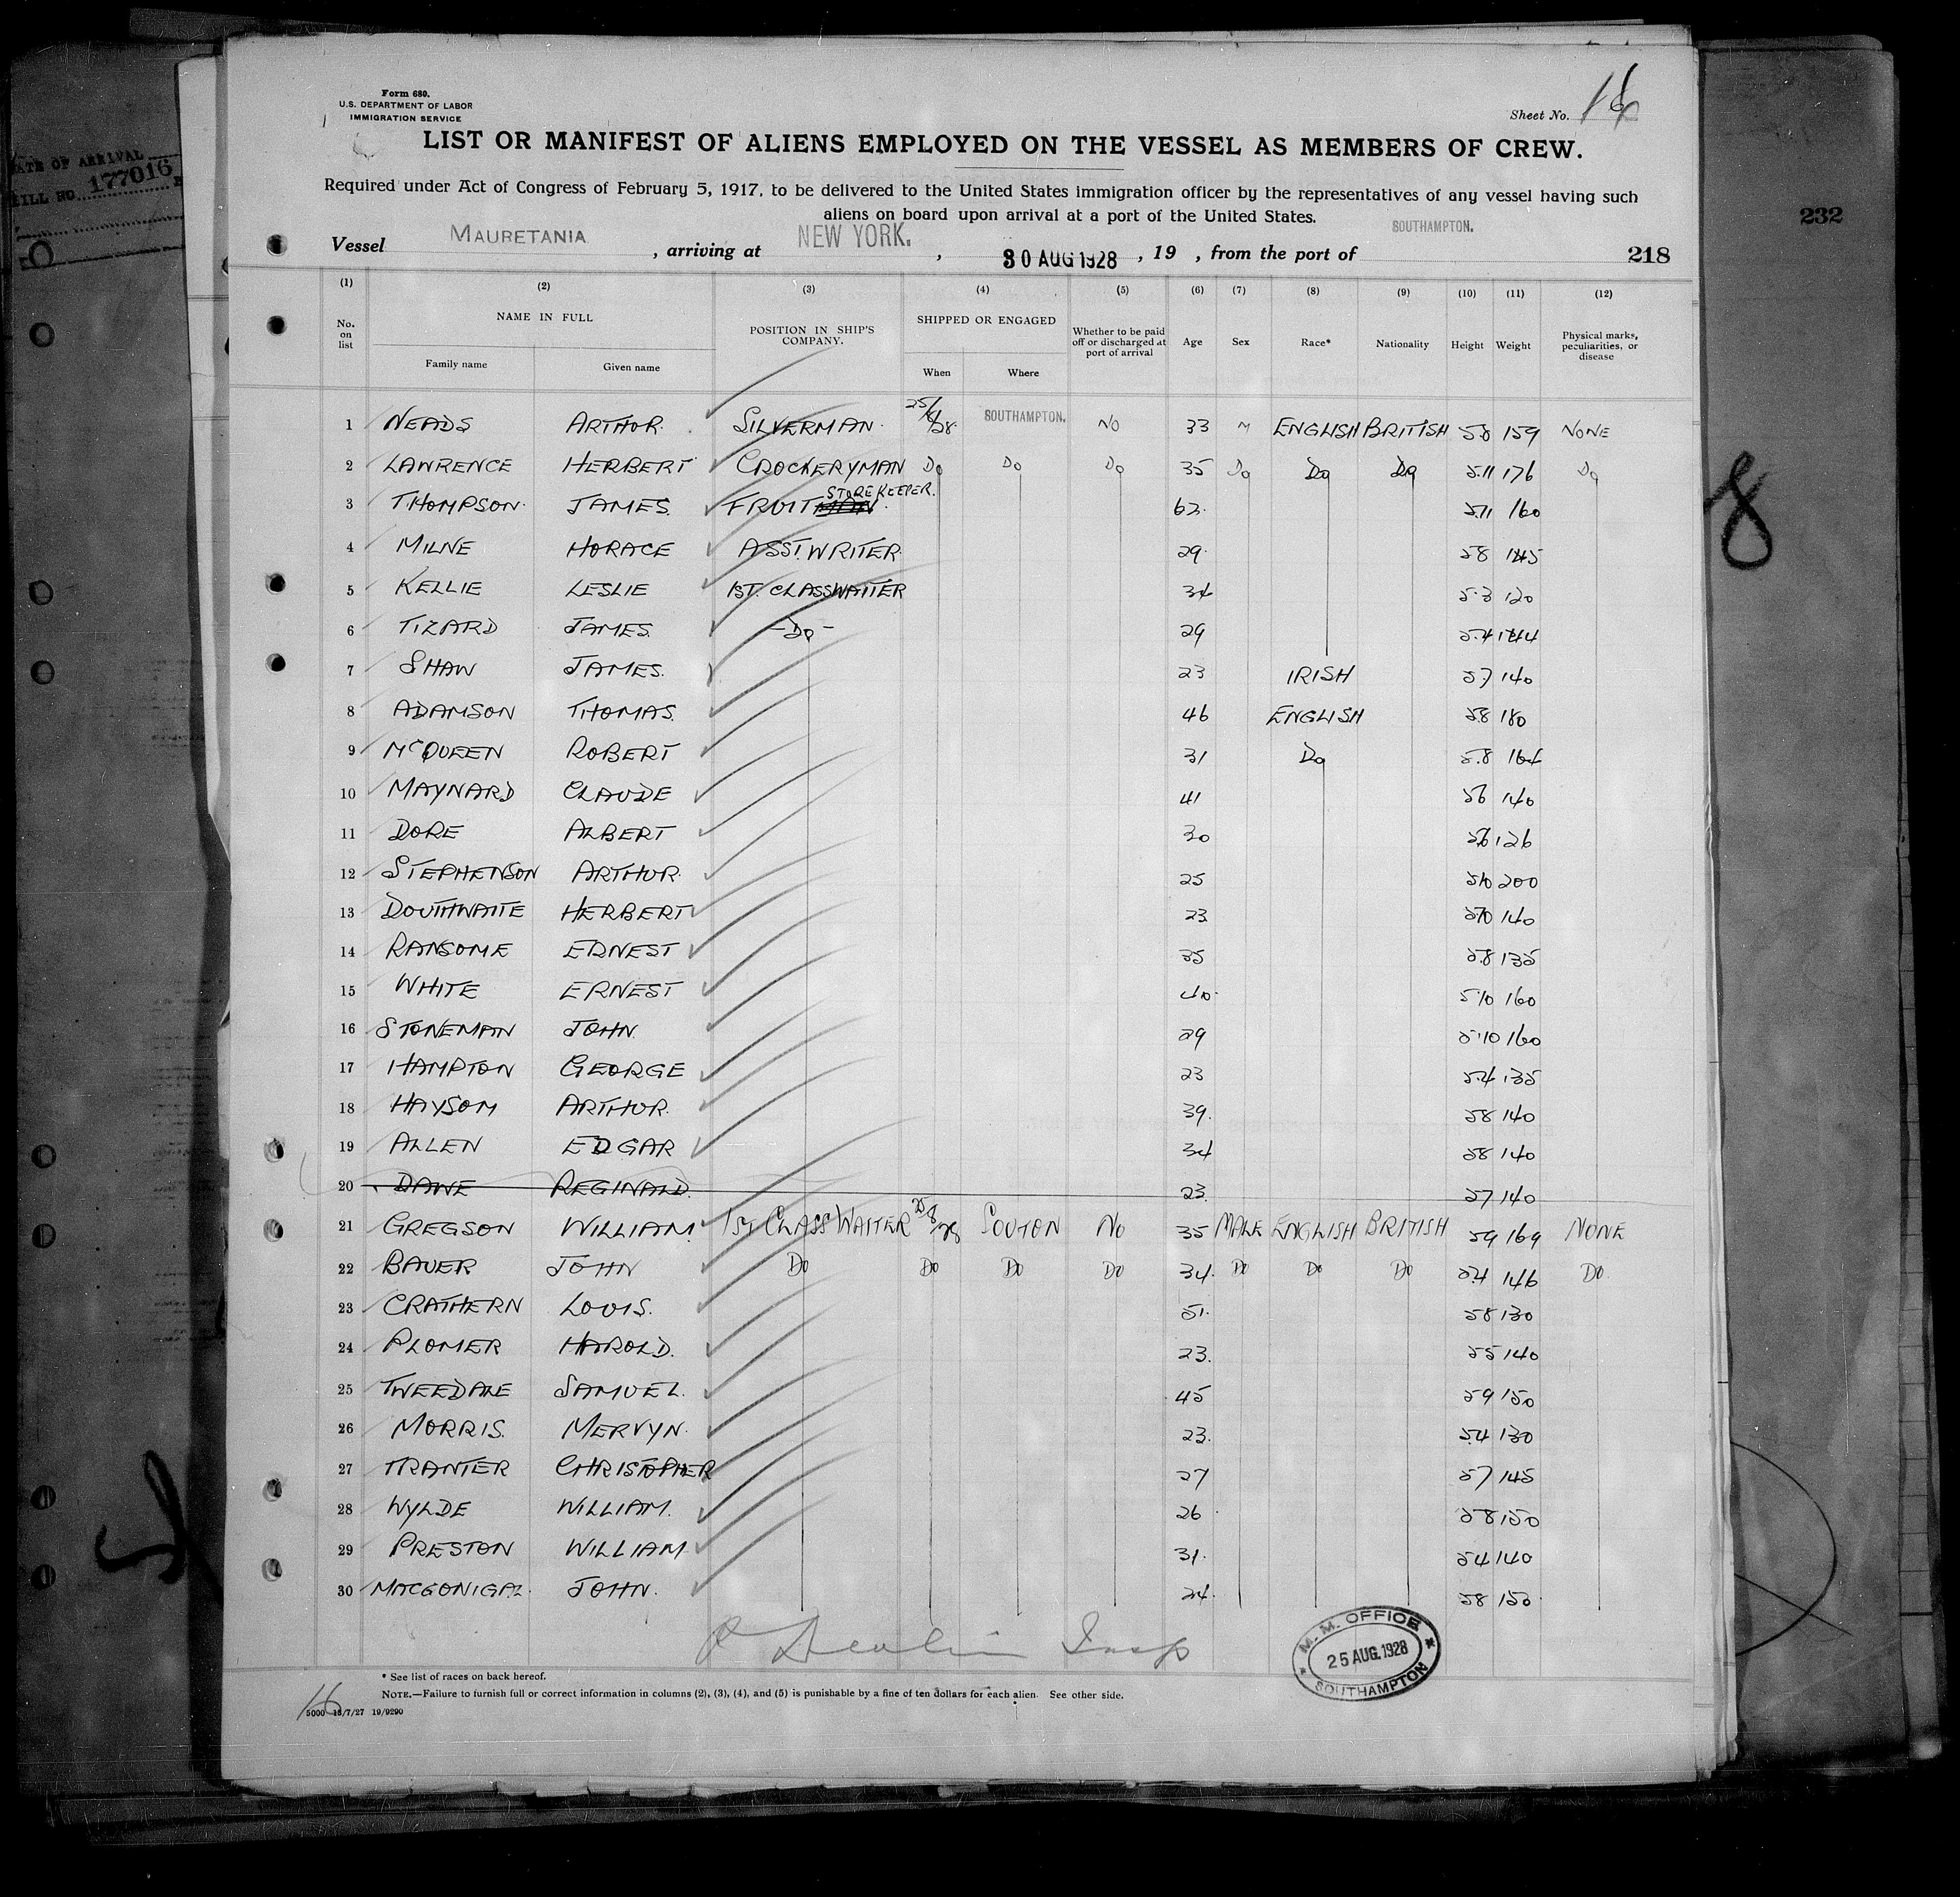 DATE OF ARRIVAL
177016
232
8
Form 680.
U.S. DEPARTMENT OF LABOR
IMMIGRATION SERVICE
Sheet No. 16
LIST OR MANIFEST OF ALIENS EMPLOYED ON THE VESSEL AS MEMBERS OF CREW.
Required under Act of Congress of February 5, 1917, to be delivered to the United States immigration officer by the representatives of any vessel having such
aliens on board upon arrival at a port of the United States.
Vessel MAURETANIA , arriving at NEW YORK. , 30 AUG 1928 , 19 , from the port of SOUTHAMPTON. 218
(1) (2) (3) (4) (5) (6) (7) (8) (9) (10) (11) (12)
No. on list NAME IN FULL Family name Given name POSITION IN SHIP'S COMPANY. SHIPPED OR ENGAGED When Where Whether to be paid off or discharged at port of arrival Age Sex Race* Nationality Height Weight Physical marks, peculiarities, or disease
1 NEADS ARTHUR. SILVERMAN. 25/8/28. SOUTHAMPTON. NO 33 M ENGLISH BRITISH 5.8 159 NONE
2 LAWRENCE HERBERT CROCKERYMAN Do Do Do 35 Do Do Do 5.11 176 Do
3 THOMPSON. JAMES. FRUIT MAN STOREKEEPER. 63. 5.11 160
4 MILNE HORACE ASST. WRITER. 29. 5.8 145
5 KELLIE LESLIE 1ST. CLASS WAITER 34 5.3 120
6 TIZARD JAMES. -Do- 29 5.4 144
7 SHAW JAMES. 23 IRISH 5.7 140
8 ADAMSON THOMAS. 46 ENGLISH 5.8 180
9 McQUEEN ROBERT 31 Do 5.8 164
10 MAYNARD CLAUDE 41 5.6 140
11 DORE ALBERT 30 5.6 126
12 STEPHENSON ARTHUR. 25 5.10 200
13 DOUTHWAITE HERBERT 23 5.70 140
14 RANSOME ERNEST 35 5.8 135
15 WHITE ERNEST 40. 5.10 160
16 STONEMAN JOHN. 29 5.10 160
17 HAMPTON GEORGE 23 5.4 135
18 HAYSOM ARTHUR. 39. 5.8 140
19 ALLEN EDGAR 34 5.8 140
20 DAWE REGINALD. 23. 5.7 140
21 GREGSON WILLIAM. 1ST CLASS WAITER 25/8/28 SOUTON NO 35 MALE ENGLISH BRITISH 5.9 169 NONE
22 BAUER JOHN Do Do Do Do 34. Do Do Do 5.4 146 Do.
23 CRATHERN LOUIS. 51. 5.8 130
24 PLOMER HAROLD. 23. 5.5 140
25 TWEEDALE SAMUEL. 45 5.9 150
26 MORRIS. MERVYN. 23. 5.4 130
27 TRANTER CHRISTOPHER 27 5.7 145
28 WYLDE WILLIAM. 26 5.8 150
29 PRESTON WILLIAM. 31. 5.4 140
30 MACGONIGAL. JOHN. 24. 5.8 150
Insp
M. M. OFFICE
25 AUG. 1928
SOUTHAMPTON
* See list of races on back hereof.
NOTE.—Failure to furnish full or correct information in columns (2), (3), (4), and (5) is punishable by a fine of ten dollars for each alien. See other side.
16
5000 13/7/27 19/9290